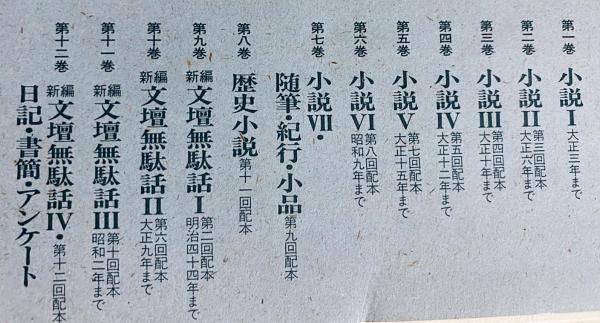 第一巻 小説Ⅰ 大正三年まで
第二巻 小説Ⅱ 第三回配本 大正六年まで
第三巻 小説Ⅲ 第四回配本 大正十年まで
第四巻 小説Ⅳ 第五回配本 大正十二年まで
第五巻 小説Ⅴ 第七回配本 大正十五年まで
第六巻 小説Ⅵ 第八回配本 昭和九年まで
第七巻 小説Ⅶ・
随筆・紀行・小品 第九回配本
第八巻 歴史小説 第十一回配本
第九巻 新編 文壇無駄話Ⅰ 第二回配本 明治四十四年まで
第十巻 新編 文壇無駄話Ⅱ 第六回配本 大正九年まで
第十一巻 新編 文壇無駄話Ⅲ 第十回配本 昭和二年まで
第十二巻 新編 文壇無駄話Ⅳ・ 第十二回配本
日記・書簡・アンケート